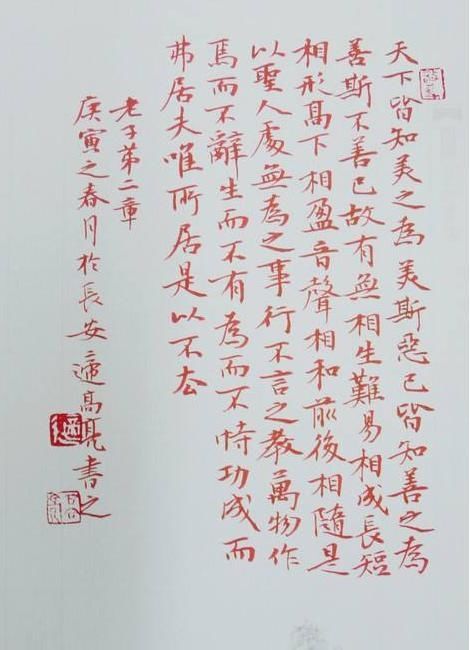 天下皆知美之為美斯惡已皆知善之為
善斯不善已故有無相生難易相成長短
相形高下相盈音聲相和前後相隨是
以聖人處無為之事行不言之教萬物作
焉而不辭生而不有為而不恃功成而
弗居夫唯所居是以不厺
老子第二章
庚寅之春月於長安遆高亮書之